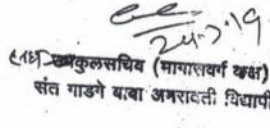 24-7-19
उपकुलसचिव (मागासवर्ग कक्ष)
संत गाडगे बाबा अमरावती विद्यापी